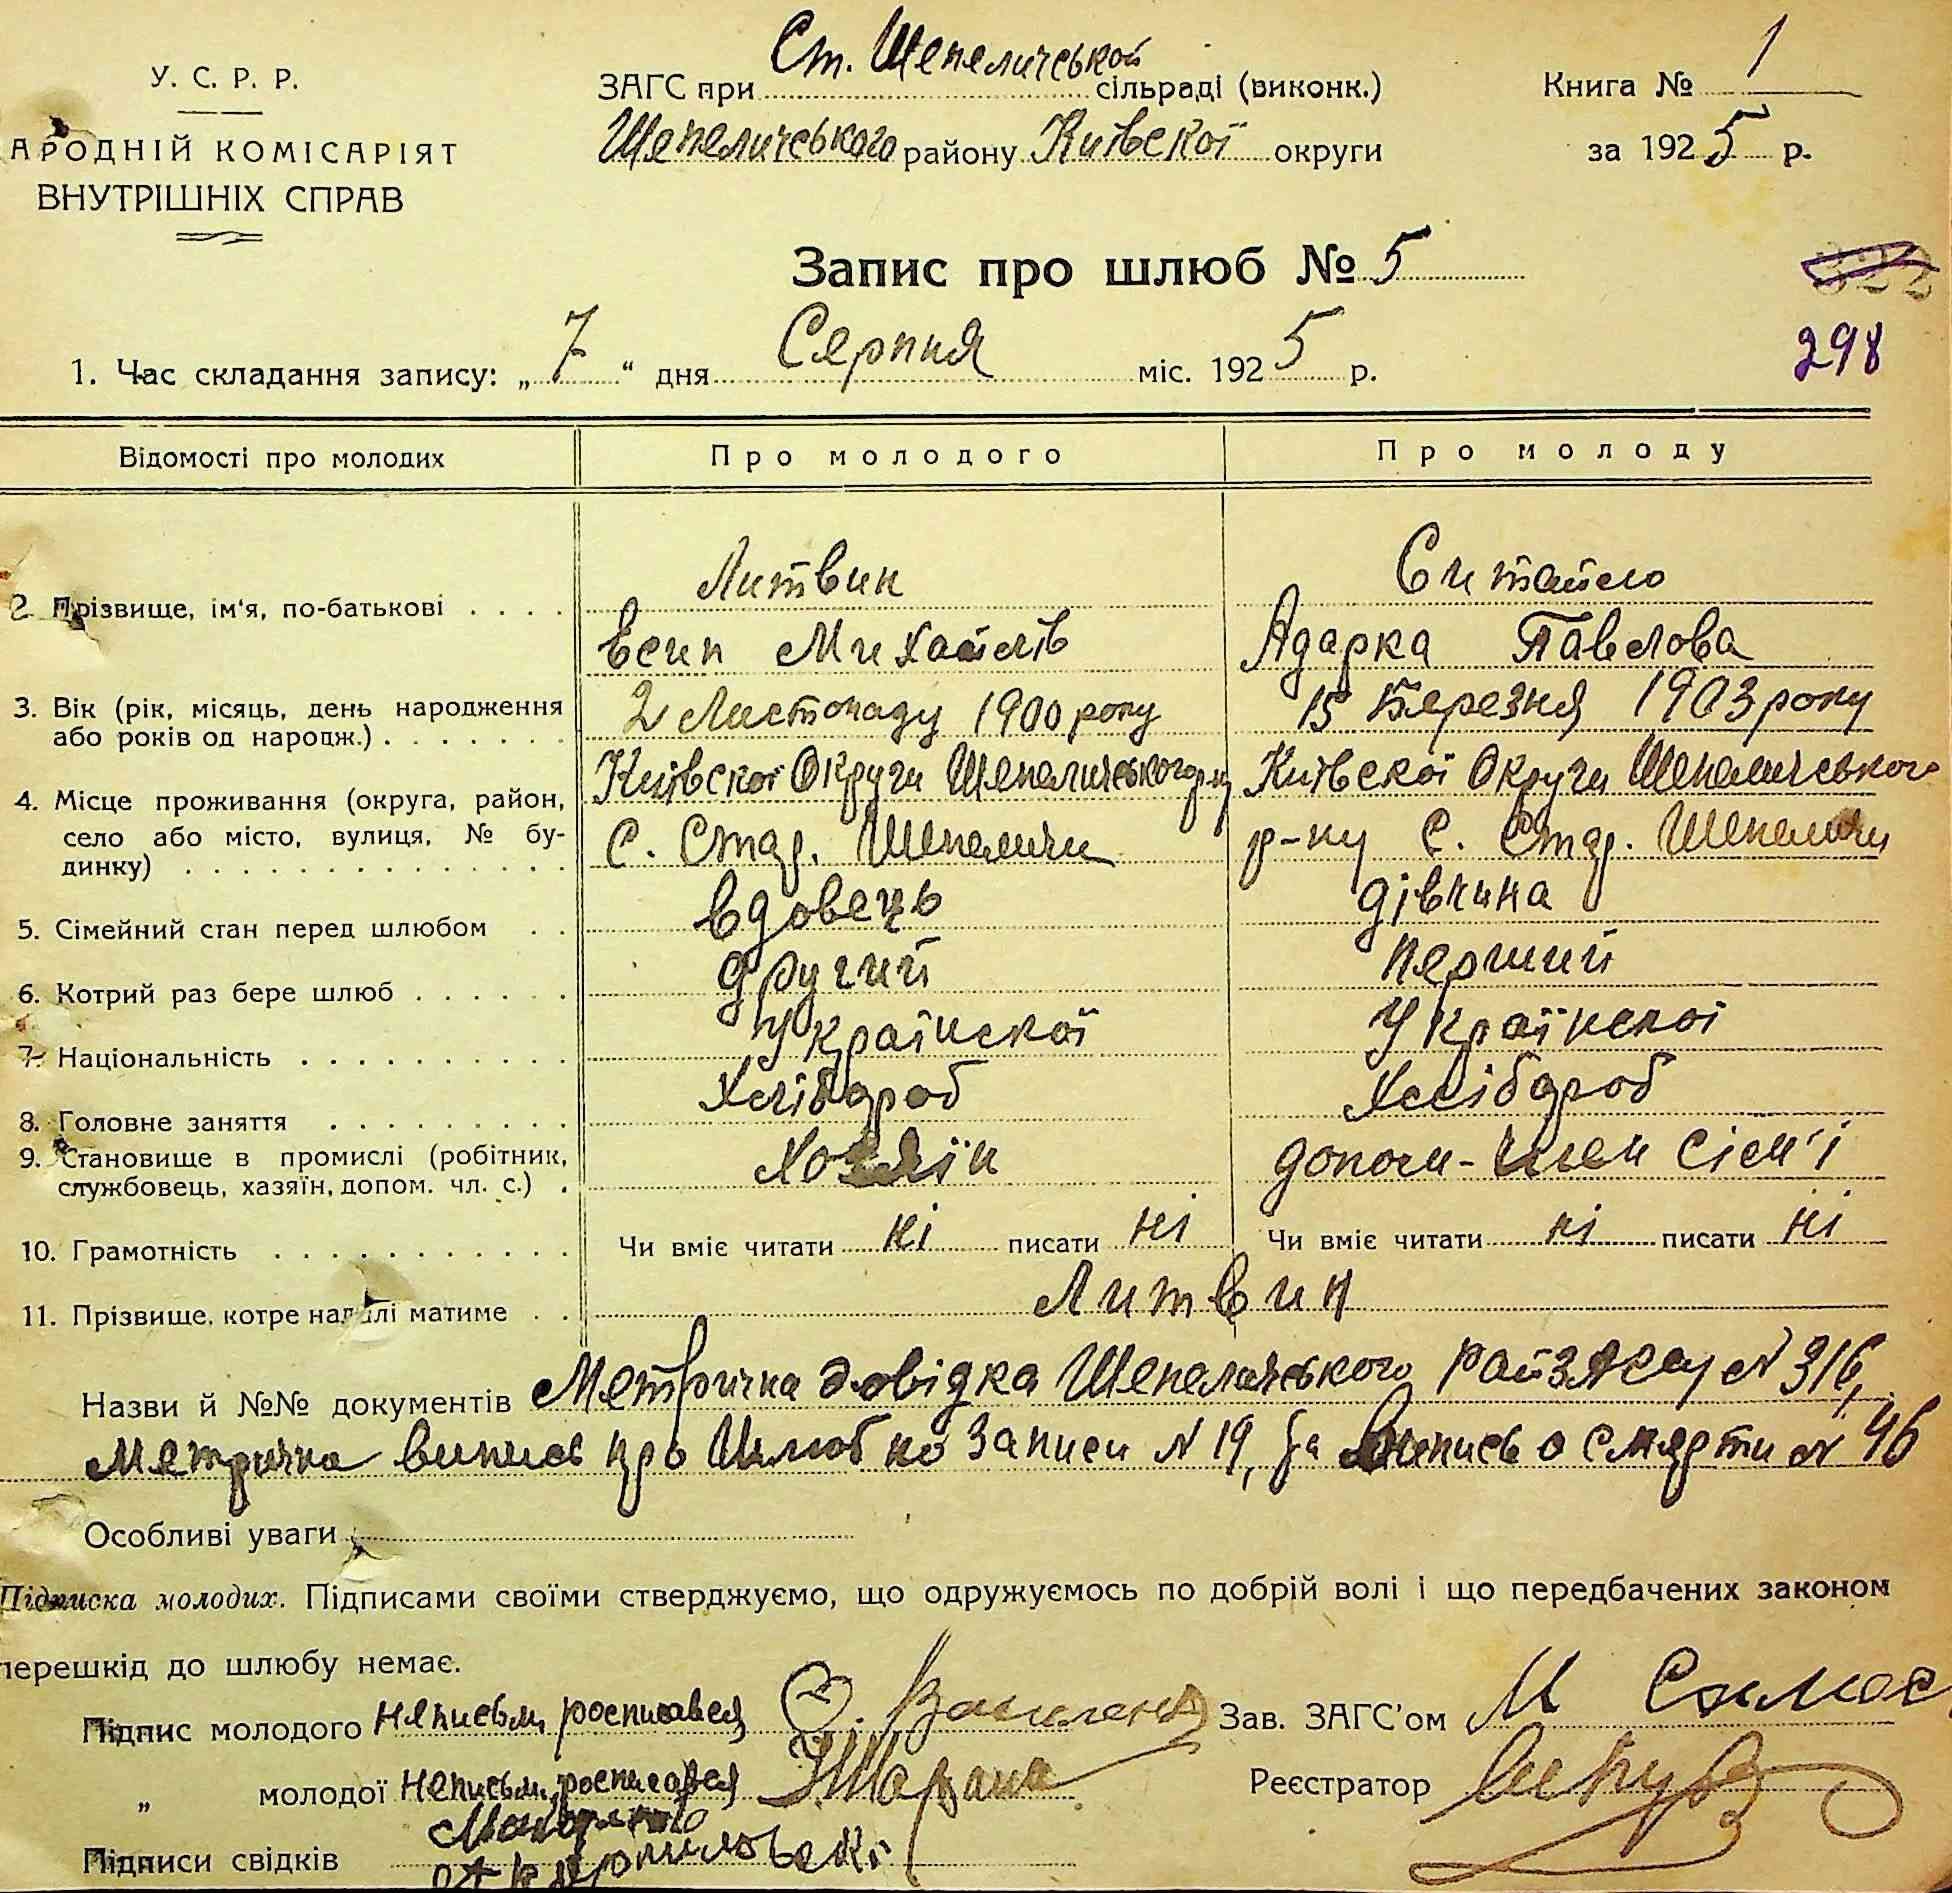 У. С. Р. Р.
АРОДНІЙ КОМІСАРІЯТ
ВНУТРІШНІХ СПРАВ
ЗАГС при Ст. Шепеличськой сільраді (виконк.)
Шепеличського району Київскої округи
Книга № 1
за 1925 р.
Запис про шлюб № 5
322
298
1. Час складання запису: „7“ дня Серпня міс. 1925 р.
Відомості про молодих Про молодого Про молоду
Литвин Ситайло
2 Прізвище, ім‘я, по-батькові
Єсип Михайлів Адарка Павлова
3. Вік (рік, місяць, день народження 2 Листопаду 1900 року 15 Березня 1903 року
або років од народж.)
Київскої Округи Шепеличського р-ну Київскої Округи Шепеличського
4. Місце проживання (округа, район,
село або місто, вулиця, № бу- С. Стар. Шепеличи р-ну С. Стар. Шепеличи
динку)
5. Сімейний стан перед шлюбом вдовець дівчина
6. Котрий раз бере шлюб другий перший
7. Національність Українскої Українскої
8. Головне заняття Хлібороб Хлібороб
9. Становище в промислі (робітник, Хозяїн допом-член сіем'ї
службовець, хазяїн, допом. чл. с.)
10. Грамотність Чи вміє читати ні писати ні Чи вміє читати ні писати ні
11. Прізвище, котре надалі матиме Литвин
Назви й №№ документів Метрична довідка Шепеличського райзагсу N 316,
Метрична випись про Шлюб по Записи N 19, та Випись о смерти N 46
Особливі уваги
Підписка молодих. Підписами своїми стверджуємо, що одружуємось по добрій волі і що передбачених законом
перешкід до шлюбу немає.
Підпис молодого неписьм, росписався Зав. ЗАГС‘ом М
„ молодої неписьм, росписався Реєстратор
Підписи свідків